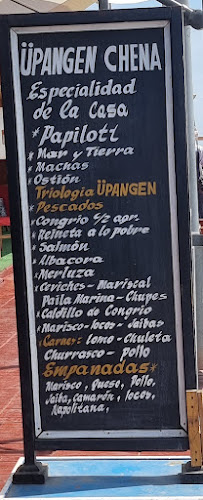 ÜPANGEN CHENA
Especialidad
de la Casa
* Papilott
* Mar y Tierra
* Machas
* Ostión
Triología ÜPANGEN
* Pescados
* Congrio c/2 agr.
* Reineta a lo pobre
* Salmón
* Albacora
* Merluza
* Ceviches - Mariscal
Paila Marina - Chupes
* Caldillo de Congrio
* Marisco - locos - Jaibas
* Carnes: lomo - chuleta
Churrasco - Pollo
Empanadas *
Marisco, Queso, Pollo,
Jaiba, Camarón, locos,
Napolitana,